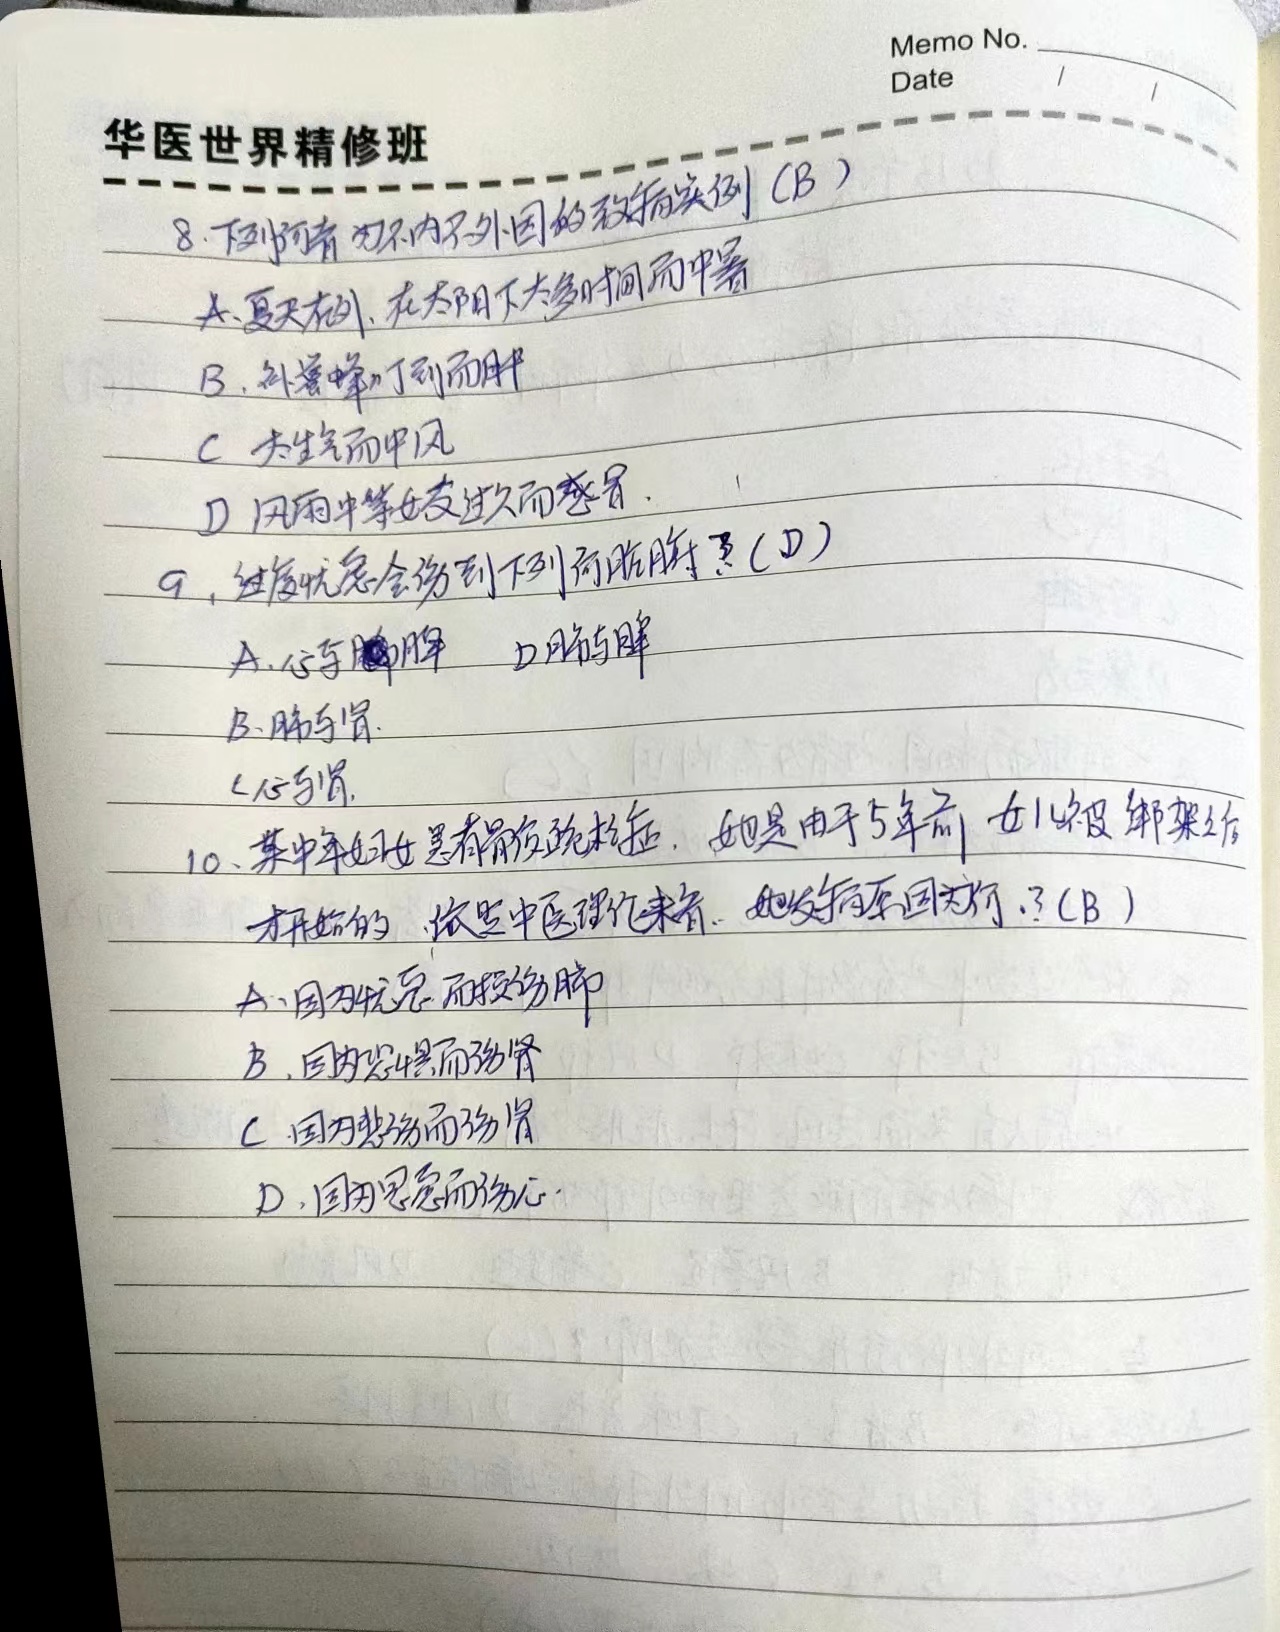 Memo No.
Date / /
华医世界精修班
8.下列何者为不内不外因的致病实例(B)
A.夏天在外、在太阳下太多时间而中暑
B.外蜜蜂叮到而肿
C 大生气而中风
D 风雨中等女友过久而感冒.
9.过度忧思会伤到下列何脏腑?(D)
A.心与脾 D肺与脾
B.肺与肾.
C心与肾.
10、某中年妇女患有骨质疏松症.她是由于5年前女儿被绑架之后
才开始的.依照中医理论来看.她发病原因为何.?(B)
A.因为忧思而损伤肺
B.因为恐惧而伤肾
C.因为悲伤而伤肾
D.因为思虑而伤心.